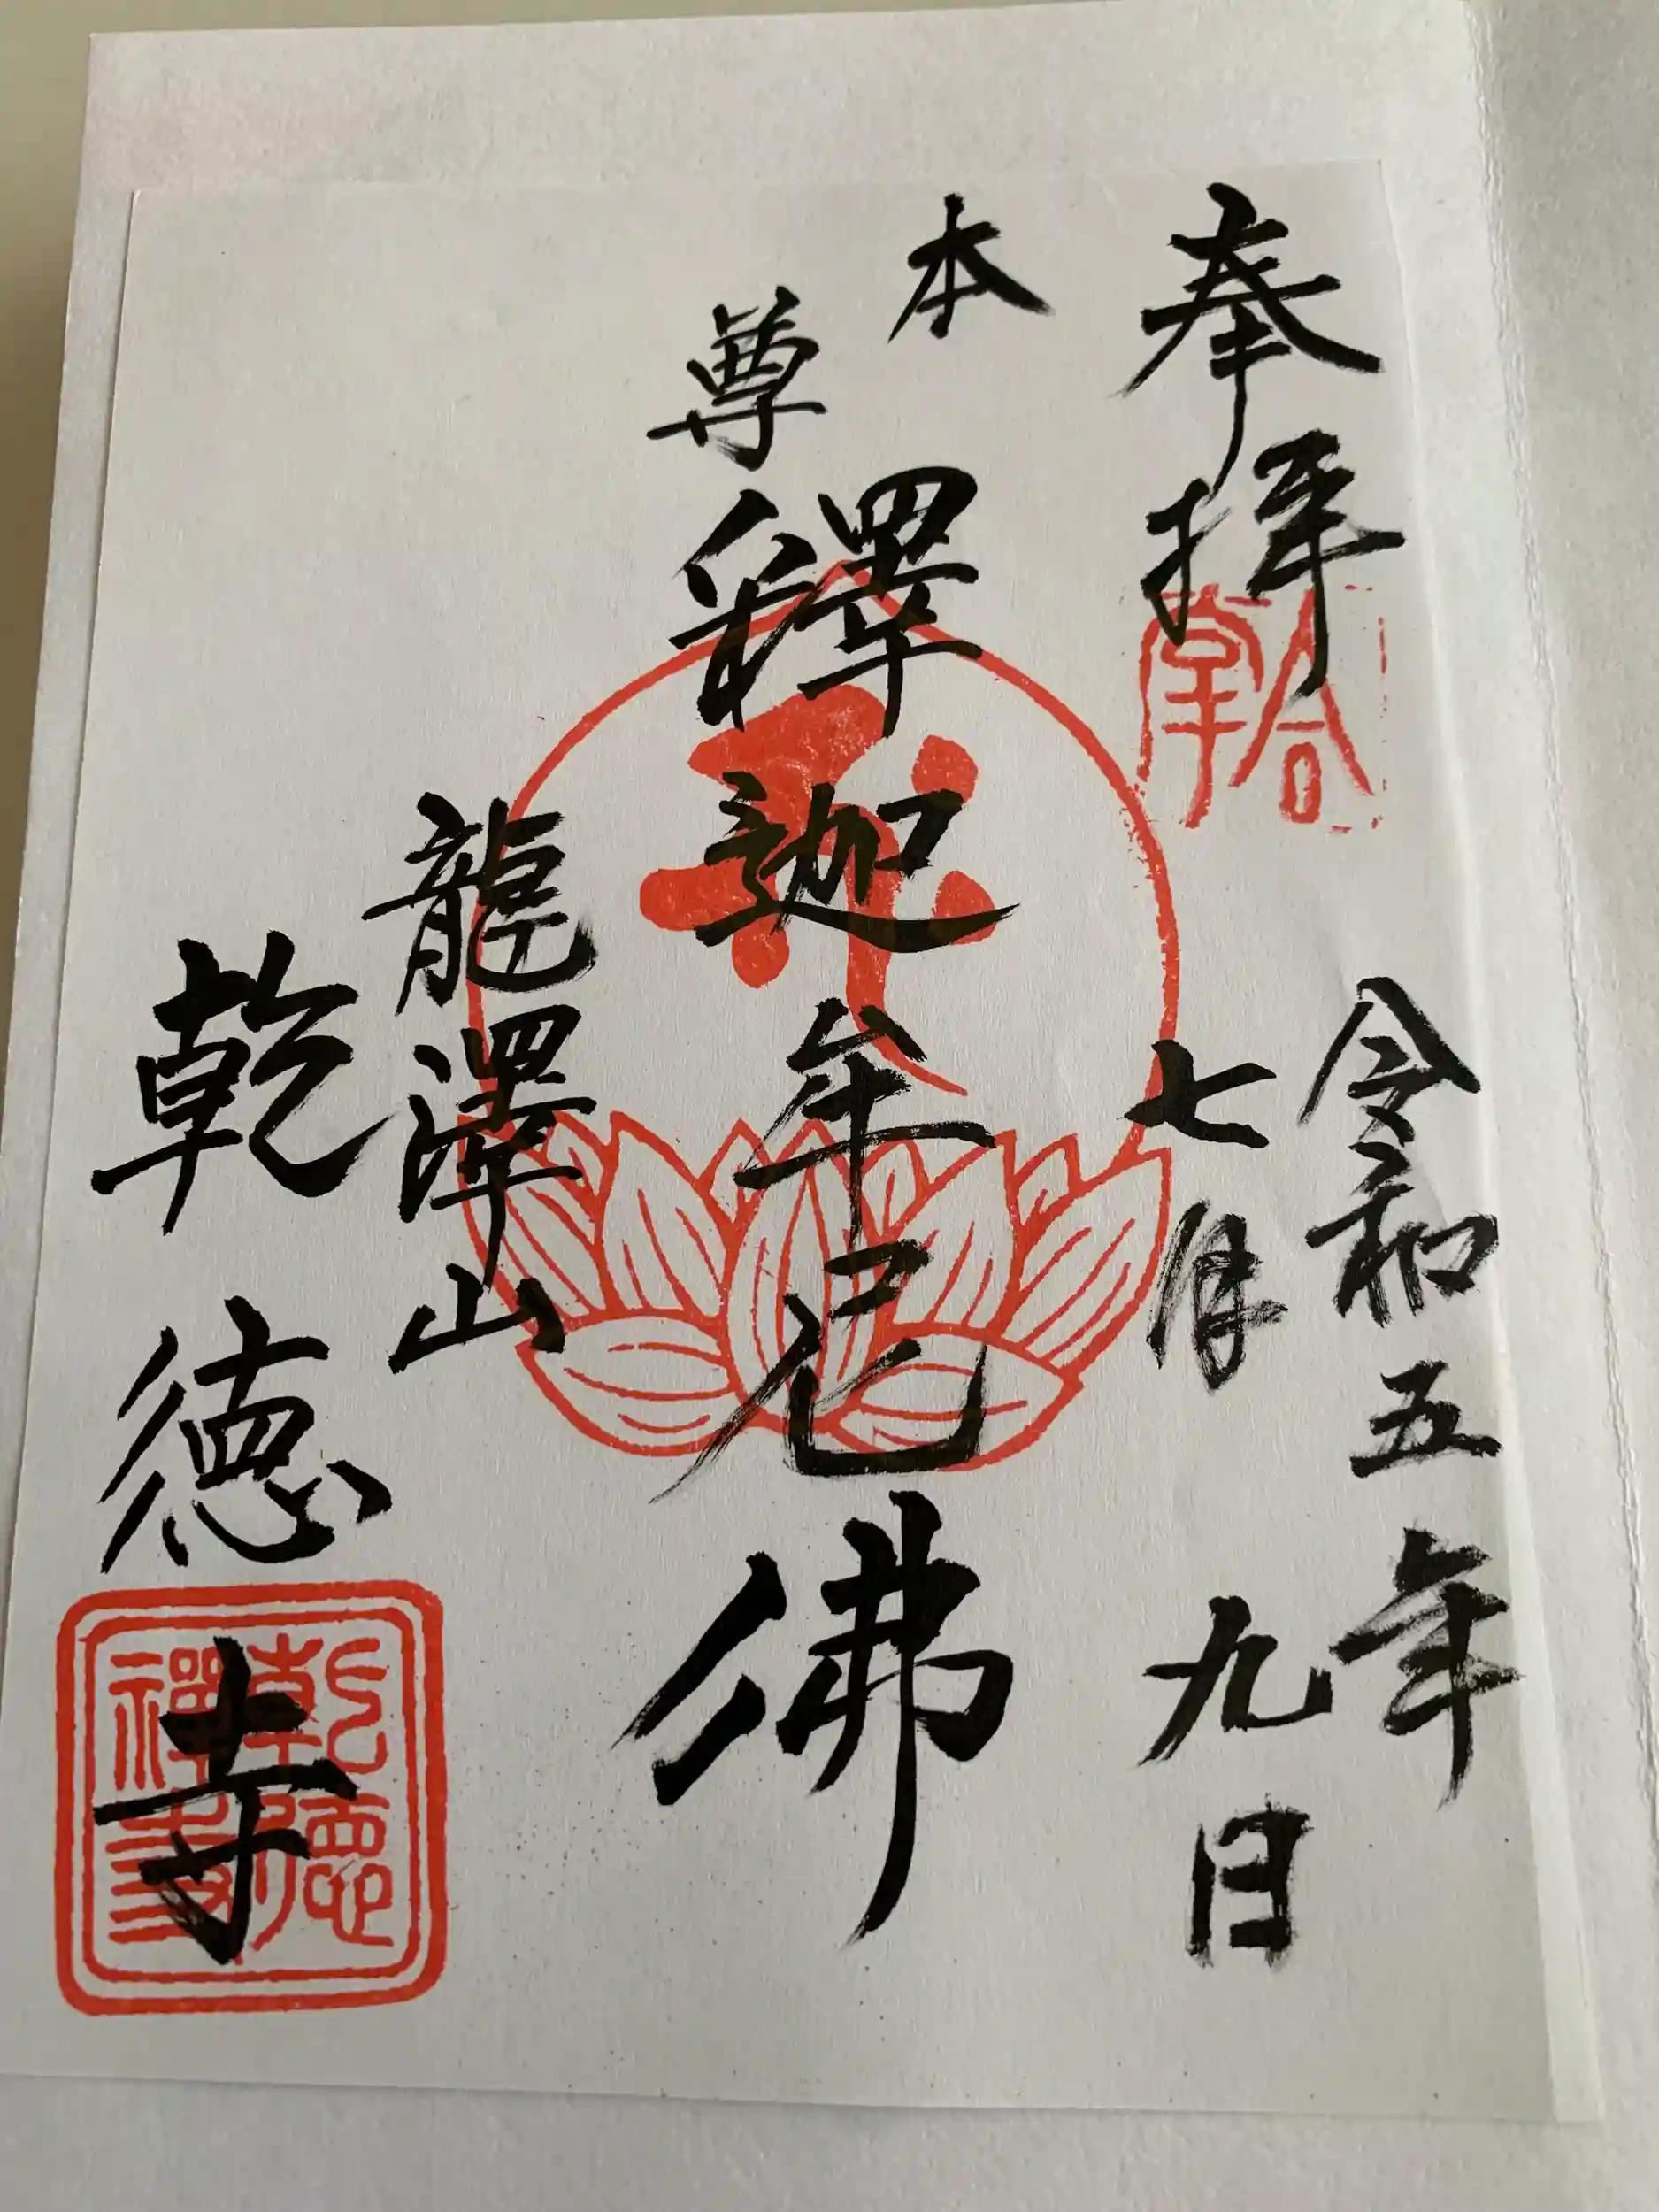 奉拝
合掌
令和五年
七月九日
本尊
釋迦牟尼佛
龍澤山
乾徳寺
乾徳禅寺